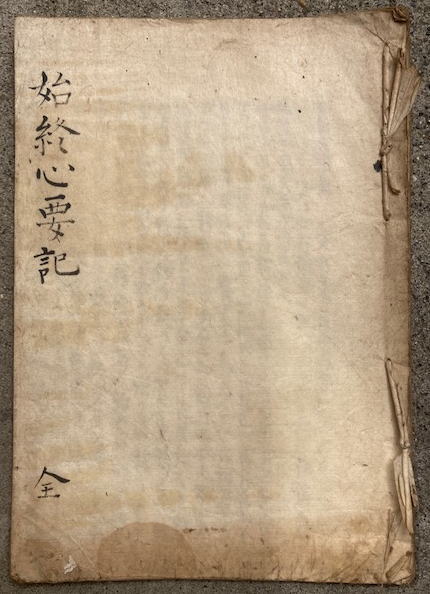 始終心要記
全